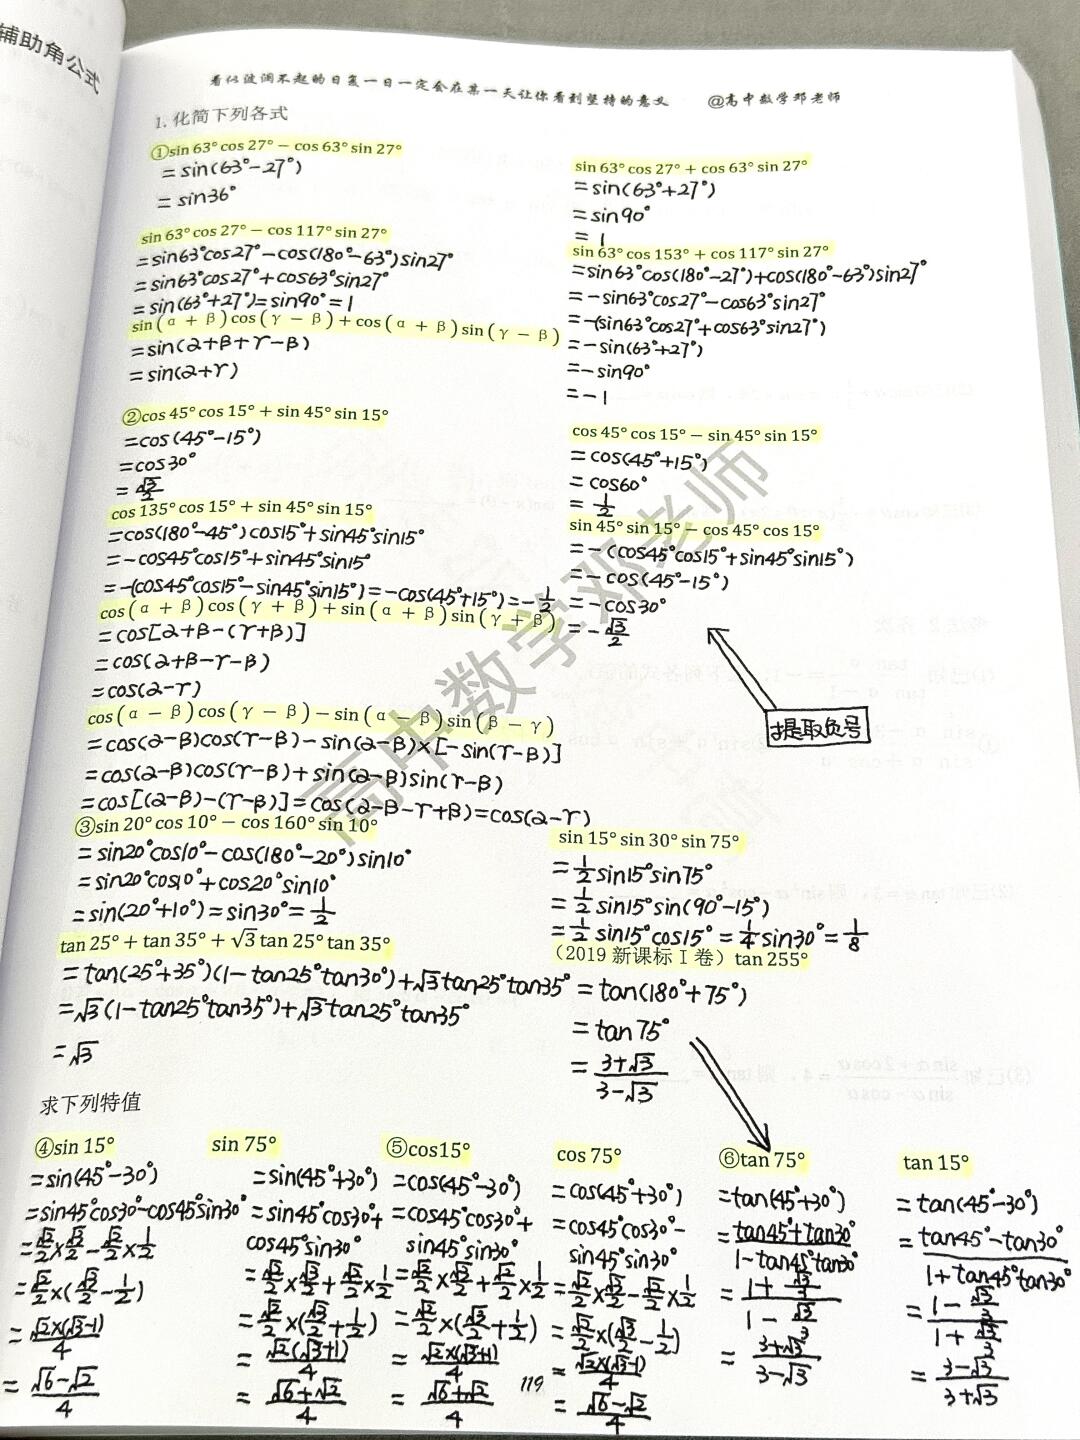 辅助角公式
看似波澜不起的日复一日一定会在某一天让你看到坚持的意义 @高中数学邓老师
1. 化简下列各式
①sin 63° cos 27° − cos 63° sin 27°
=sin(63°−27°)
= sin36°
sin 63° cos 27° + cos 63° sin 27°
=sin(63°+27°)
=sin90°
= 1
sin 63° cos 27° − cos 117° sin 27°
=sin63°cos27°−cos(180°−63°)sin27°
=sin63°cos27°+cos63°sin27°
=sin(63°+27°)=sin90°=1
sin 63° cos 153° + cos 117° sin 27°
=sin63°cos(180°−27°)+cos(180°−63°)sin27°
=−sin63°cos27°−cos63°sin27°
=−(sin63°cos27°+cos63°sin27°)
=−sin(63°+27°)
=−sin90°
=−1
sin(α+β)cos(γ−β)+cos(α+β)sin(γ−β)
=sin(α+β+γ−β)
=sin(α+γ)
②cos 45° cos 15° + sin 45° sin 15°
=cos(45°−15°)
=cos30°
=√3/2
cos 45° cos 15° − sin 45° sin 15°
=cos(45°+15°)
= cos60°
= 1/2
cos 135° cos 15° + sin 45° sin 15°
=cos(180°−45°)cos15°+sin45°sin15°
=−cos45°cos15°+sin45°sin15°
=−(cos45°cos15°−sin45°sin15°)=−cos(45°+15°)=−1/2
sin 45° sin 15° − cos 45° cos 15°
=−(cos45°cos15°+sin45°sin15°)
=−cos(45°−15°)
=−cos30°
=−√3/2
提取负号
cos(α+β)cos(γ+β)+sin(α+β)sin(γ+β)
=cos[α+β−(γ+β)]
=cos(α+β−γ−β)
=cos(α−γ)
cos(α−β)cos(γ−β)−sin(α−β)sin(β−γ)
=cos(α−β)cos(γ−β)−sin(α−β)×[−sin(γ−β)]
=cos(α−β)cos(γ−β)+sin(α−β)sin(γ−β)
=cos[(α−β)−(γ−β)]=cos(α−β−γ+β)=cos(α−γ)
③sin 20° cos 10° − cos 160° sin 10°
=sin20°cos10°−cos(180°−20°)sin10°
=sin20°cos10°+cos20°sin10°
=sin(20°+10°)=sin30°=1/2
sin 15° sin 30° sin 75°
=1/2sin15°sin75°
=1/2sin15°sin(90°−15°)
=1/2sin15°cos15°=1/4sin30°=1/8
tan 25° + tan 35° + √3 tan 25° tan 35°
=tan(25°+35°)(1−tan25°tan30°)+√3tan25°tan35°
=√3(1−tan25°tan35°)+√3tan25°tan35°
=√3
(2019 新课标 I 卷) tan 255°
=tan(180°+75°)
=tan75°
=3+√3/3−√3
求下列特值
④sin 15°
=sin(45°−30°)
=sin45°cos30°−cos45°sin30°
=√2/2×√3/2−√2/2×1/2
=√2/2×(√3/2−1/2)
=√2×(√3−1)/4
=√6−√2/4
sin 75°
=sin(45°+30°)
=sin45°cos30°+
cos45°sin30°
=√2/2×√3/2+√2/2×1/2
=√2/2×(√3/2+1/2)
=√2(√3+1)/4
=√6+√2/4
⑤cos15°
=cos(45°−30°)
=cos45°cos30°+
sin45°sin30°
=√2/2×√3/2+√2/2×1/2
=√2/2×(√3/2+1/2)
=√2×(√3+1)/4
=√6+√2/4
cos 75°
=cos(45°+30°)
=cos45°cos30°−
sin45°sin30°
=√2/2×√3/2−√2/2×1/2
=√2/2×(√3/2−1/2)
=√2×(√3−1)/4
=√6−√2/4
⑥tan 75°
=tan(45°+30°)
=tan45°+tan30°/1−tan45°tan30°
=1+√3/3/1−√3/3
=3+√3/3−√3
tan 15°
=tan(45°−30°)
=tan45°−tan30°/1+tan45°tan30°
=1−√3/3/1+√3/3
=3−√3/3+√3
119
高中数学邓老师